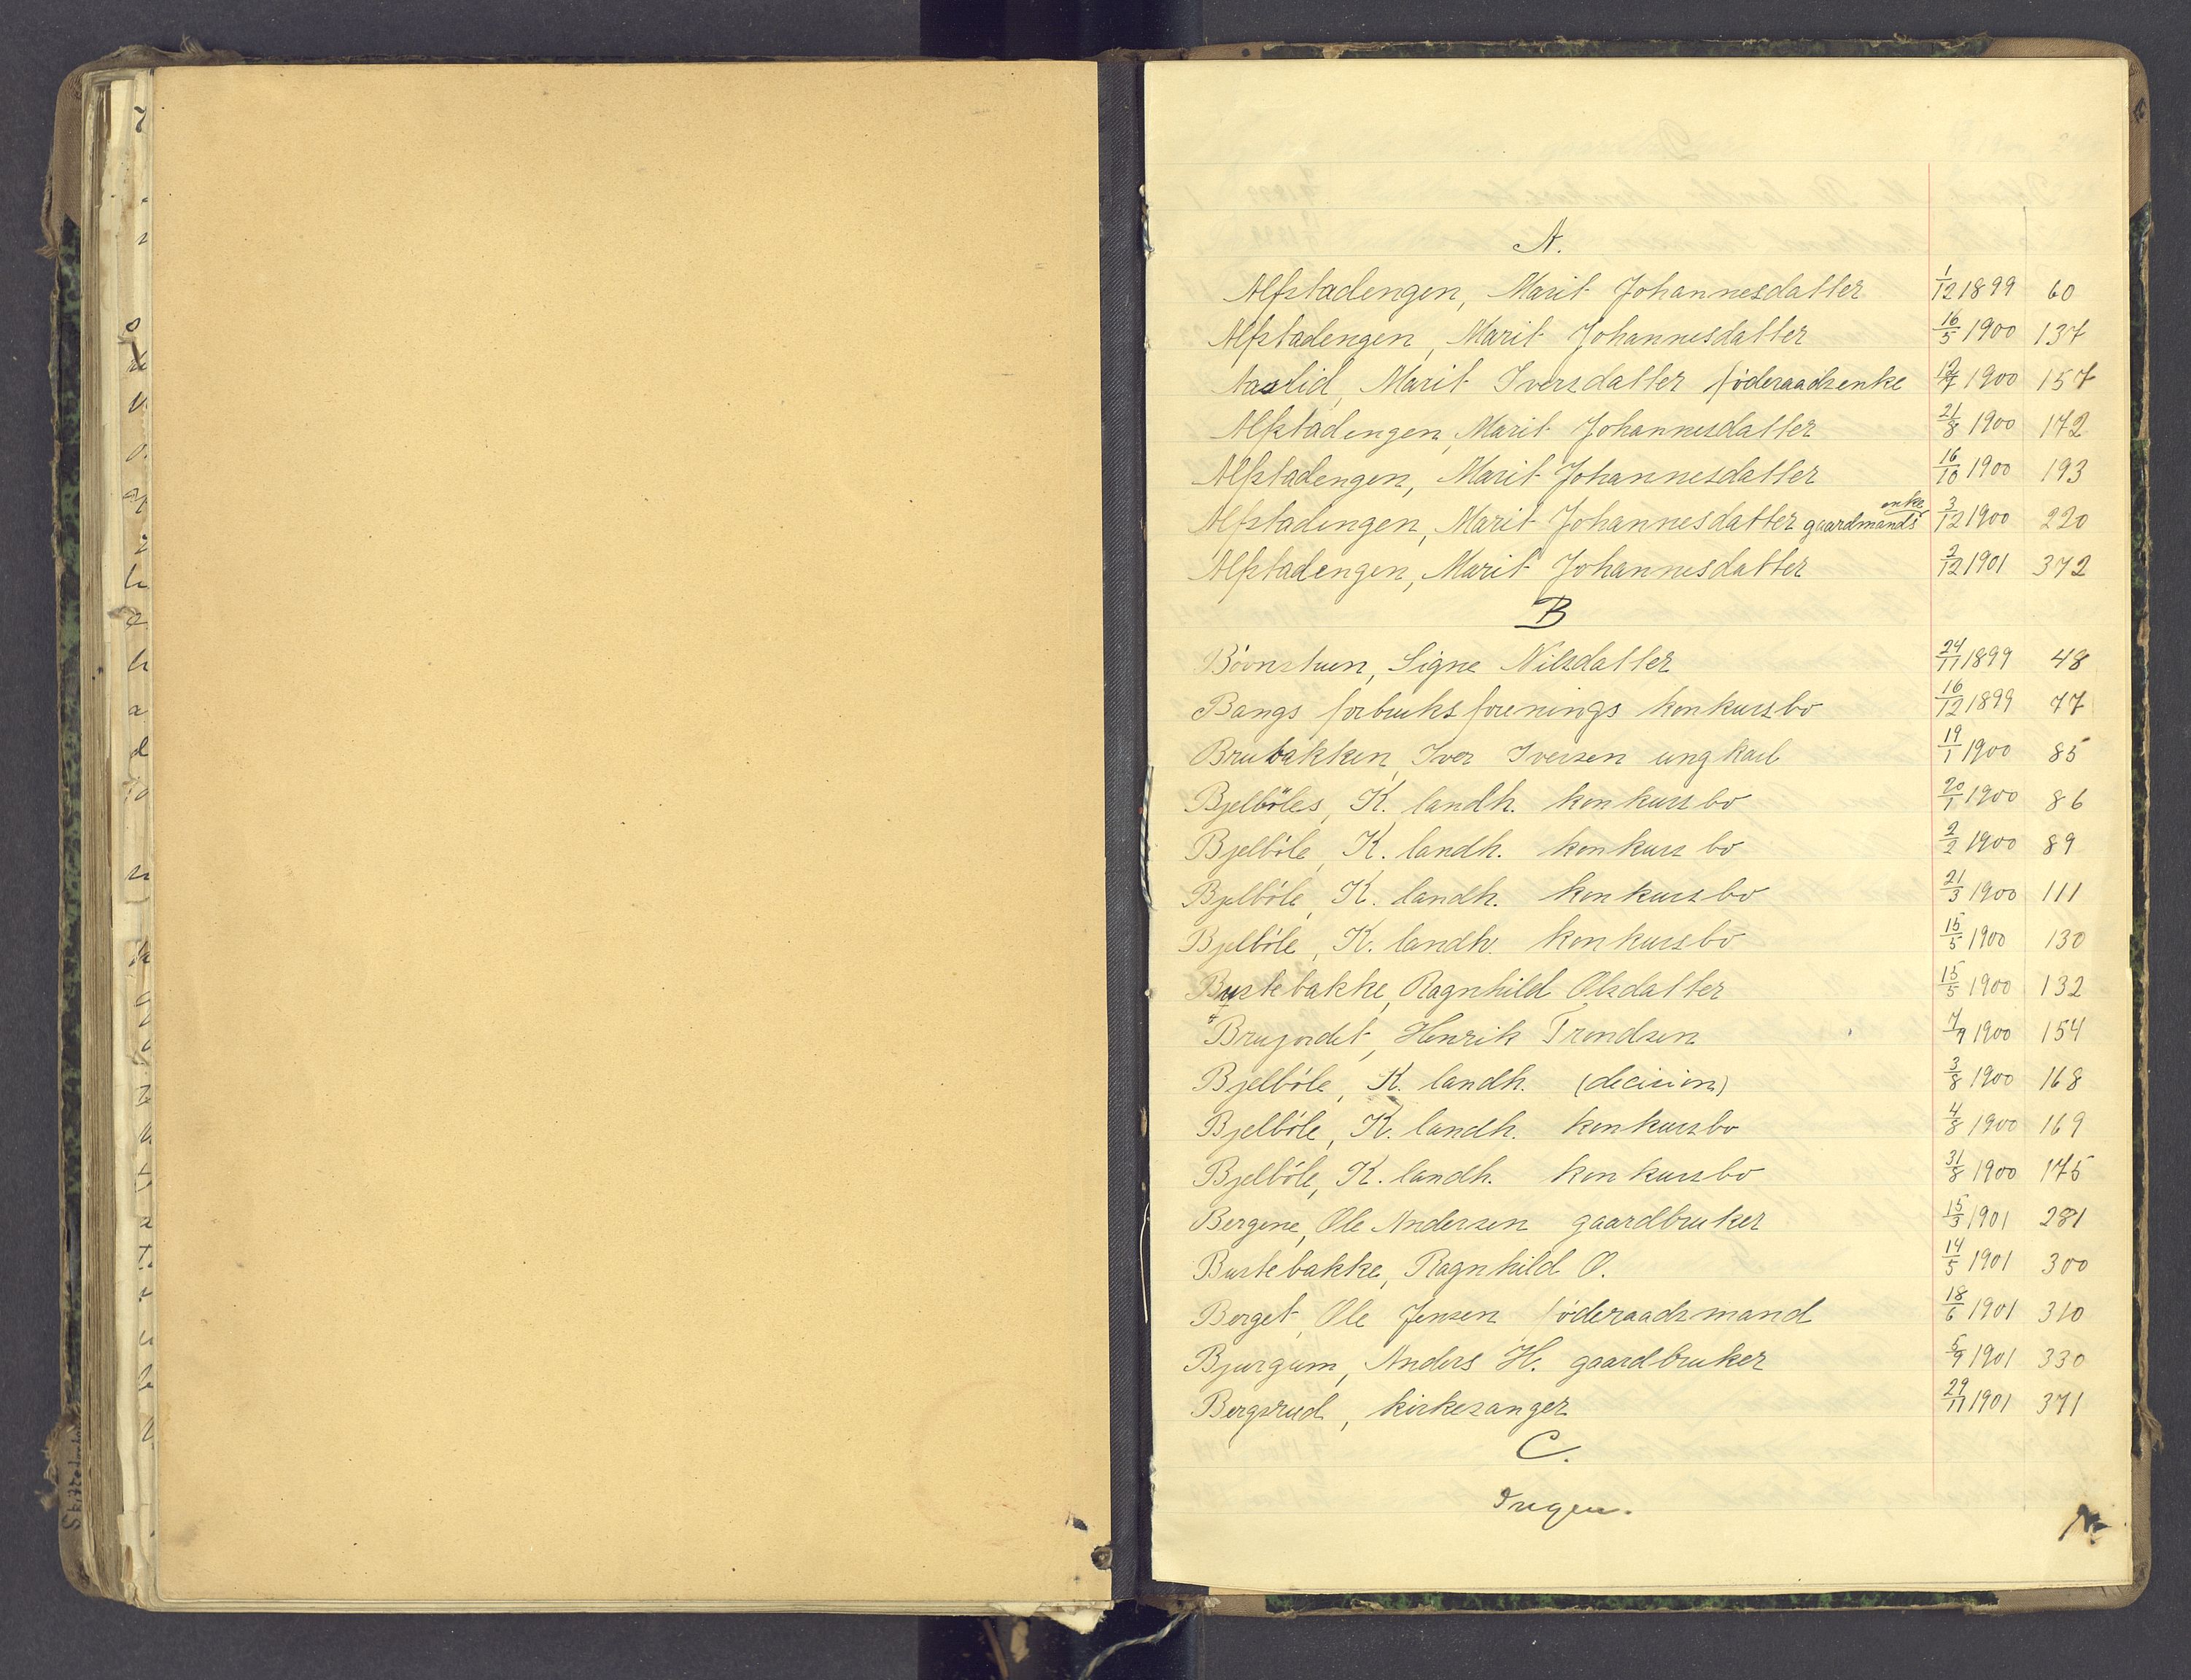 A.
Alfstadengen, Marit Johannesdatter 1/12 1899 60
Alfstadengen, Marit Johannesdatter 16/5 1900 137
Aaslid, Marit Iversdatter föderaadsenke 12/7 1900 157
Alfstadengen, Marit Johannesdatter 21/8 1900 172
Alfstadengen, Marit Johannesdatter 16/10 1900 193
Alfstadengen, Marit Johannesdatter gaardmands enke 3/12 1900 220
Alfstadengen, Marit Johannesdatter 2/12 1901 372
B
Bövnstuen, Signe Nilsdatter 24/11 1899 48
Bangs forbruksforenings konkursbo 16/12 1899 77
Brubakken, Iver Iversen ungkarl 19/1 1900 85
Bjelböles, K. landh. konkursbo 20/1 1900 86
Bjelböle, K. landh. konkursbo 2/2 1900 89
Bjelböle, K. landh. konkursbo 21/3 1900 111
Bjelböle, K. landh. konkursbo 15/5 1900 130
Burtebakke, Ragnhild Olsdatter 15/5 1900 132
Brujordet, Henrik Trondsen 7/7 1900 154
Bjelböle, K. landh. (decision) 3/8 1900 168
Bjelböle, K. landh. konkursbo 4/8 1900 169
Bjelböle, K. landh. konkursbo 31/8 1900 175
Bergene, Ole Andersen gaardbruker 15/3 1901 281
Burtebakke, Ragnhild O. 14/5 1901 300
Berget, Ole Jensen föderaadsmand 18/6 1901 310
Bjurgum, Anders H. gaardbruker 5/9 1901 330
Bergsrud, kirkesanger 29/11 1901 371
C.
Ingen.